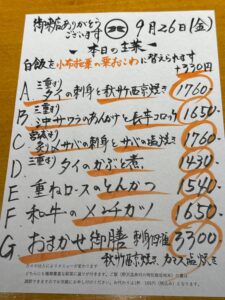 御来店ありがとうございます 北 9月26日(金)
本日の主菜
白飯を小布施栗の栗おこわに替えられます
+330円
A. 三重より タイの刺身と秋サケ西京焼き 1760
B. 三重より 沖サワラのあんかけと長芋コロッケ 1650
C. 宮城より 〆サバの刺身とサバの塩焼き 1760
D. 三重より タイのかぶと煮 1430
E 重ねロースのとんかつ 1540
F 和牛のメンチカツ 1650
G おまかせ御膳 刺身4種 3300
秋サケ西京焼き カマス塩焼き